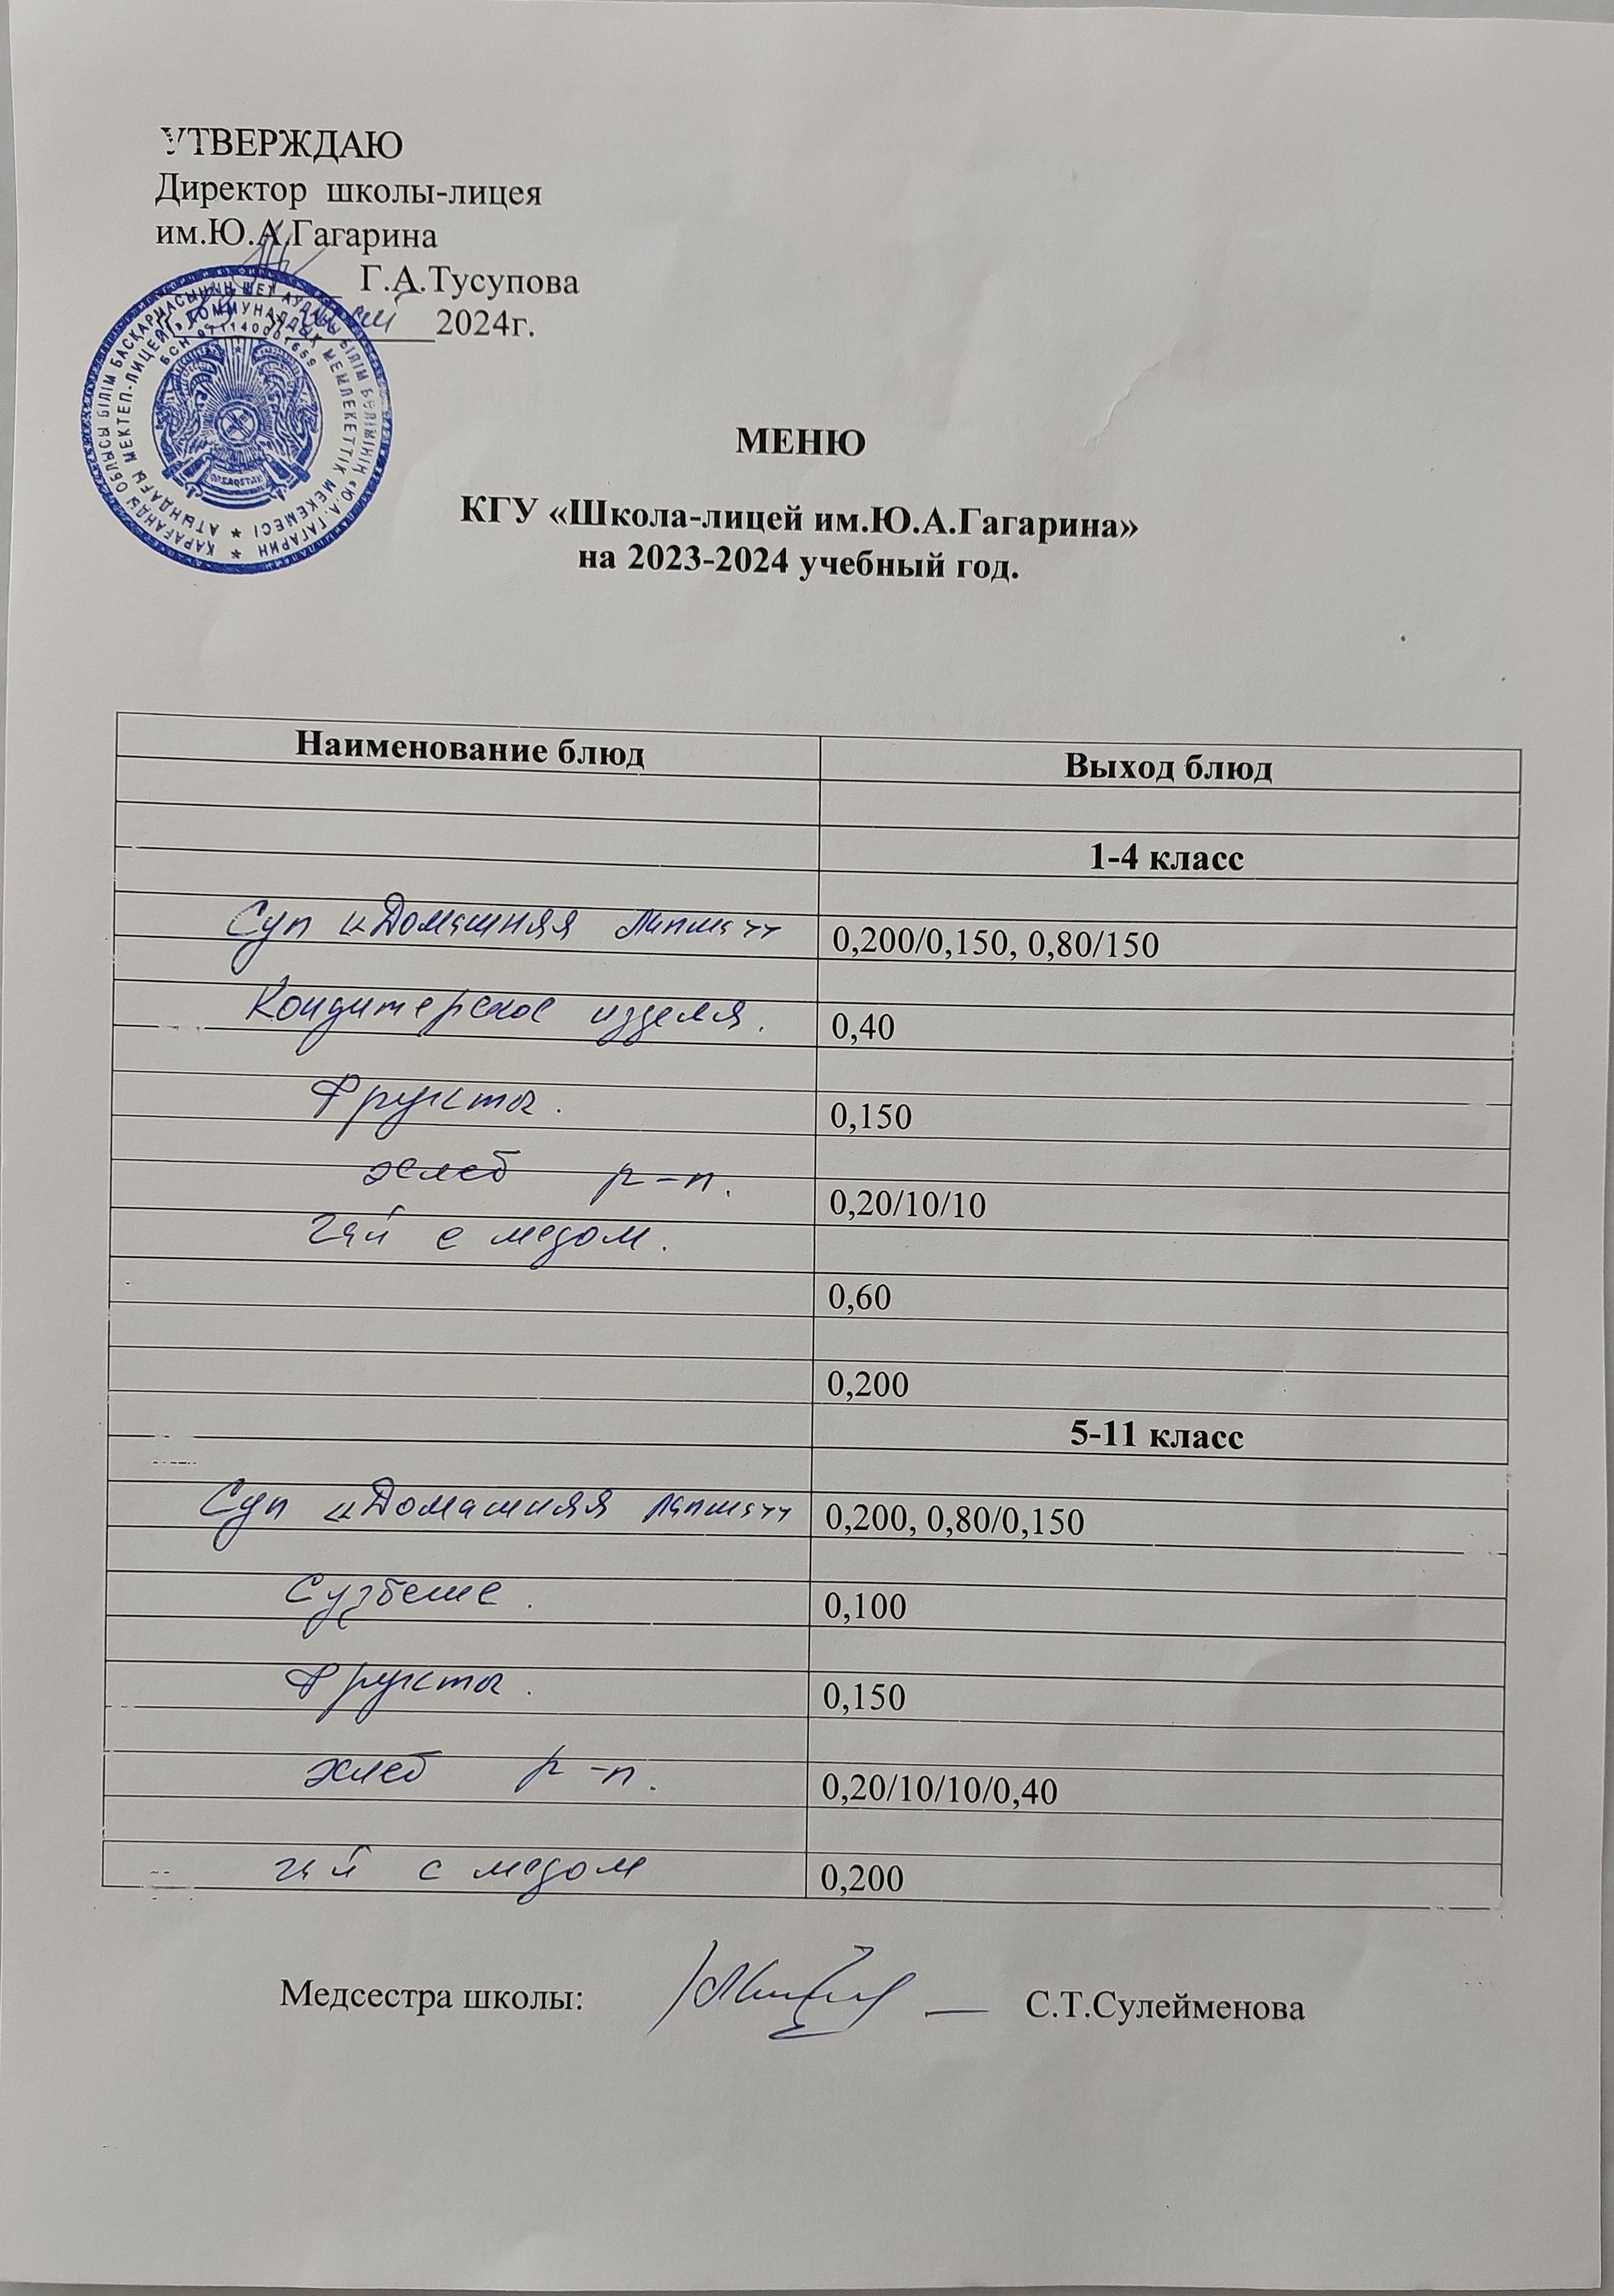 УТВЕРЖДАЮ
Директор школы-лицея
им.Ю.А.Гагарина
Г.А.Тусупова
2024г.
ҚАРАҒАНДЫ ОБЛЫСЫ БІЛІМ БАСҚАРМАСЫНЫҢ ШЕТ АУДАНЫ БІЛІМ БӨЛІМІНІҢ «Ю.А. ГАГАРИН
АТЫНДАҒЫ МЕКТЕП-ЛИЦЕЙІ» КОММУНАЛДЫҚ МЕМЛЕКЕТТІК МЕКЕМЕСІ
БСН
QAZAQSTAN
МЕНЮ
КГУ «Школа-лицей им.Ю.А.Гагарина»
на 2023-2024 учебный год.
Наименование блюд Выход блюд
1-4 класс
Суп «Домашняя лапша» 0,200/0,150, 0,80/150
Кондитерское изделя. 0,40
Фрукты. 0,150
хлеб р-п. 0,20/10/10
чай с медом.
0,60
0,200
5-11 класс
Суп «Домашняя лапша» 0,200, 0,80/0,150
Сузбеше. 0,100
Фрукты. 0,150
хлеб р-п. 0,20/10/10/0,40
чай с медом 0,200
Медсестра школы: С.Т.Сулейменова